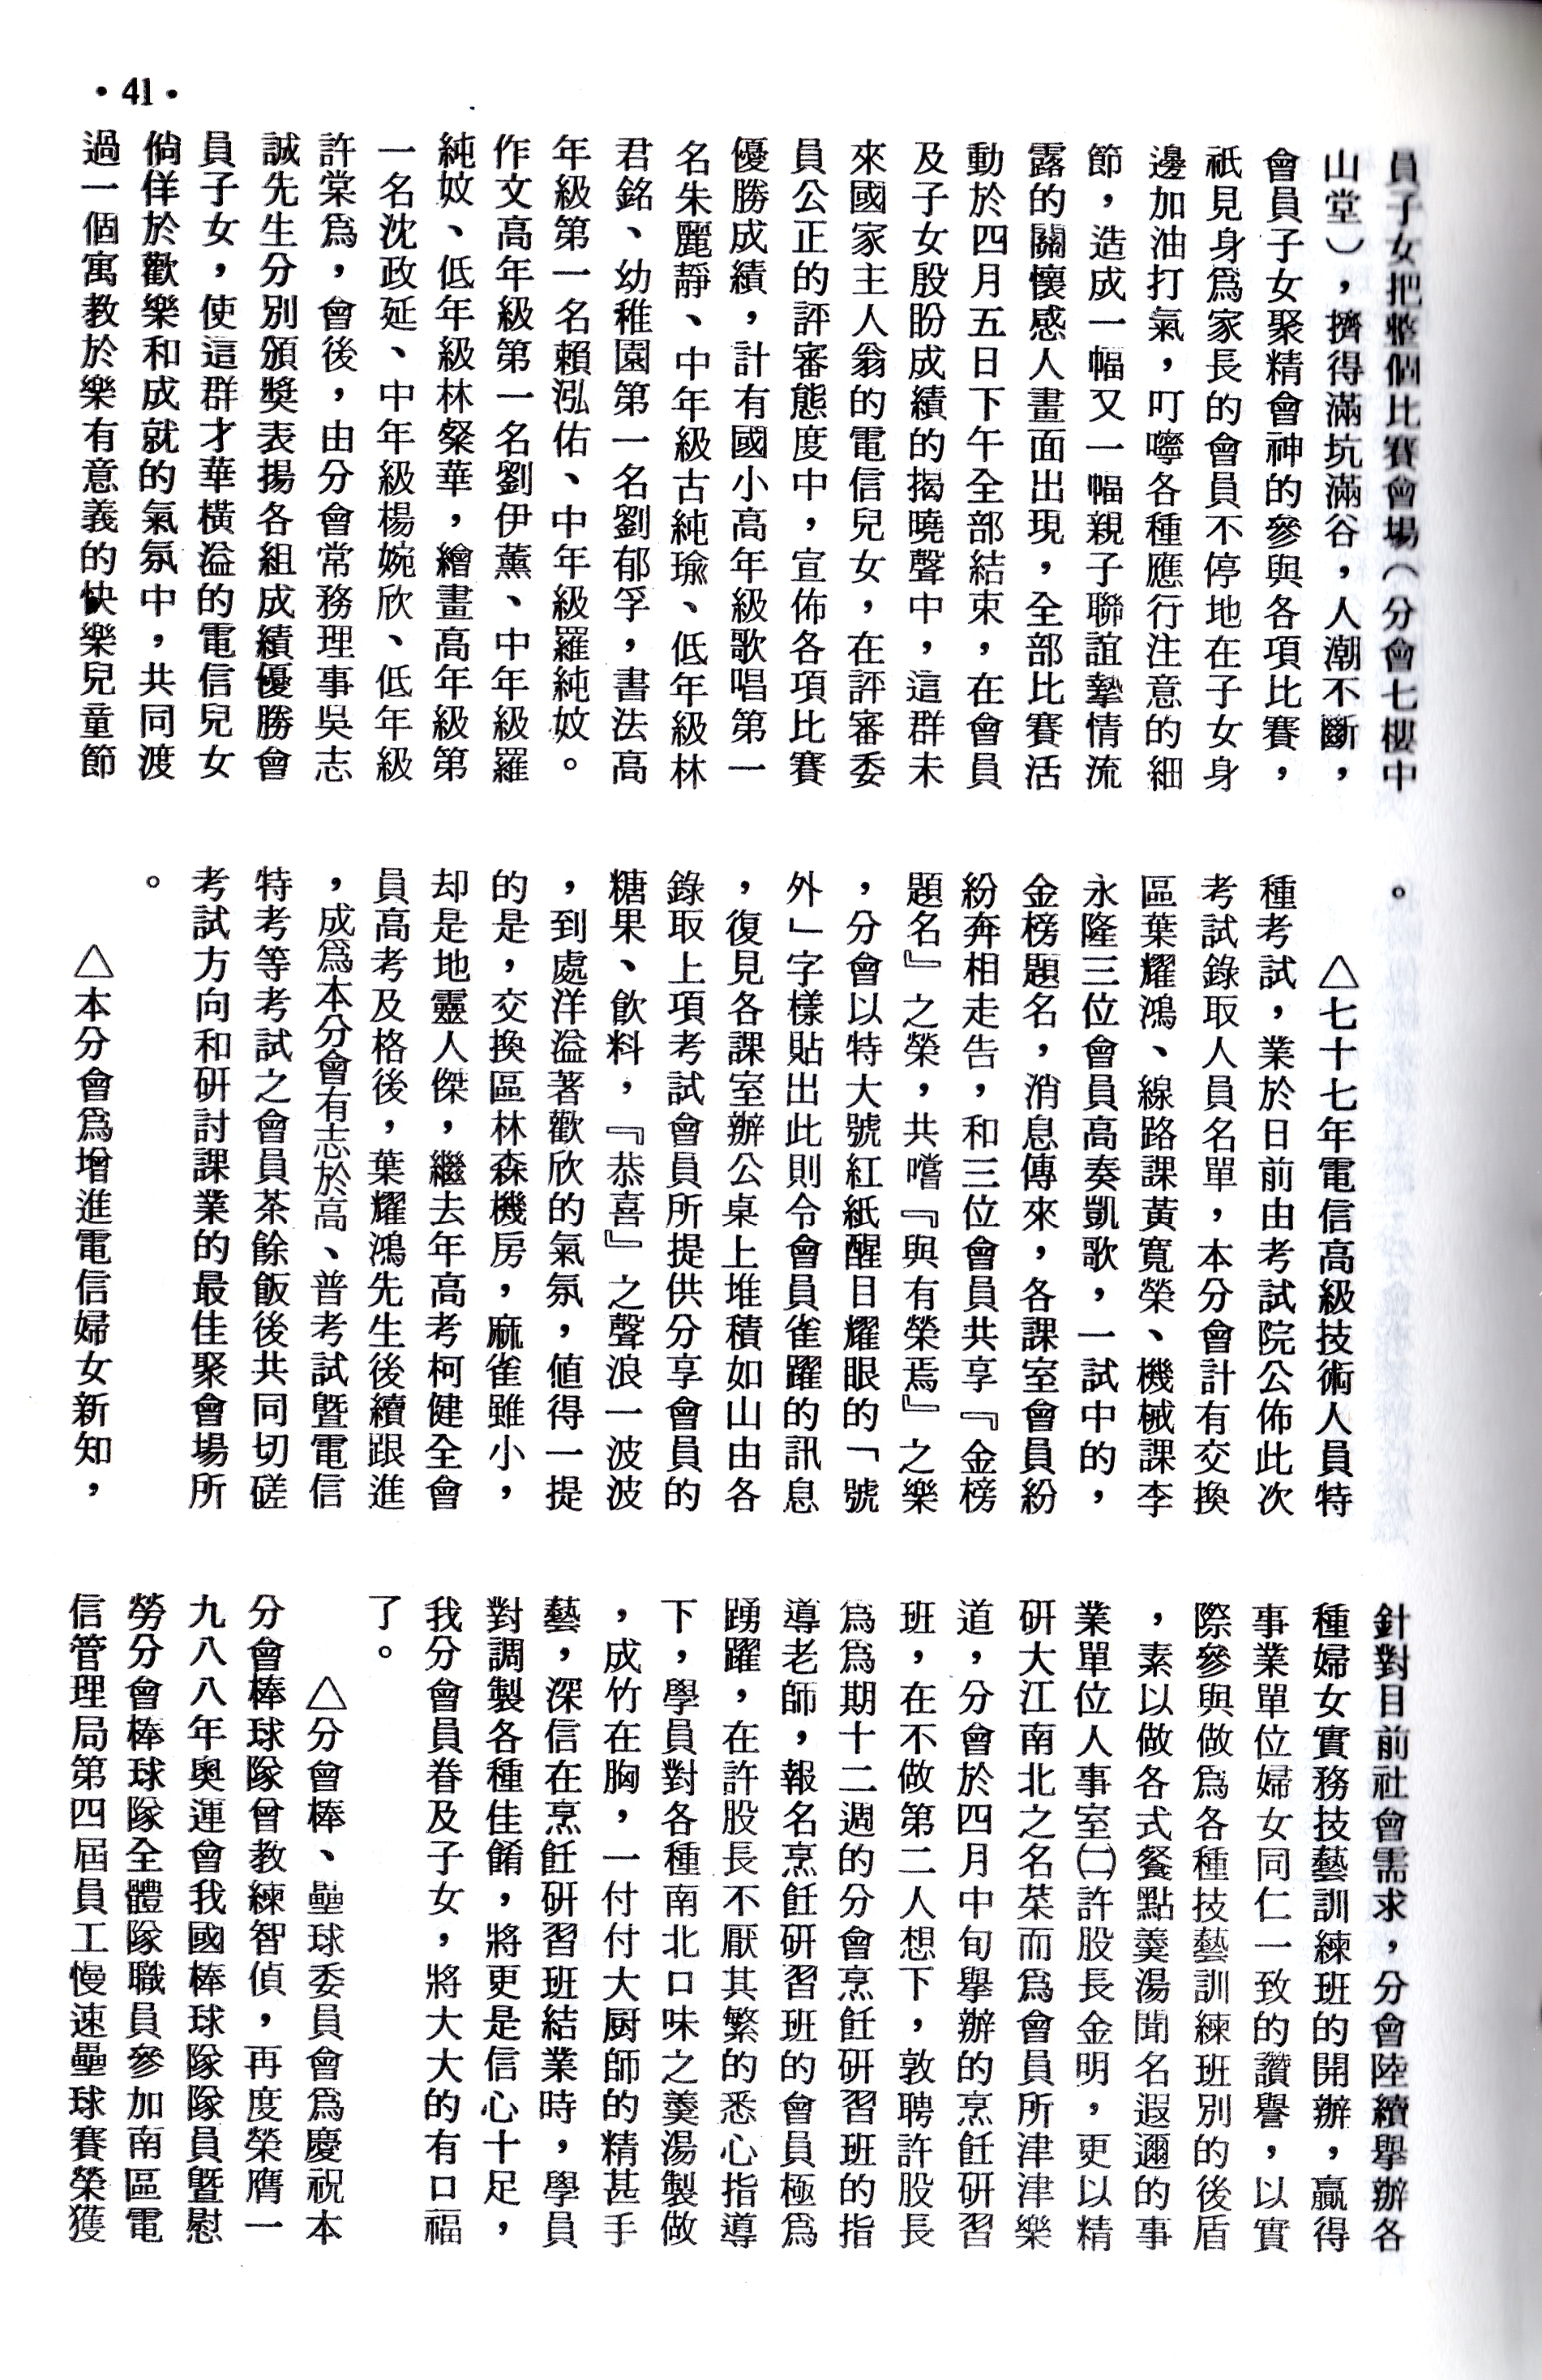 •41•
員子女把整個比賽會場（分會七樓中
山堂），擠得滿坑滿谷，人潮不斷，
會員子女聚精會神的參與各項比賽，
祇見身爲家長的會員不停地在子女身
邊加油打氣，叮嚀各種應行注意的細
節，造成一幅又一幅親子聯誼摯情流
露的關懷感人畫面出現，全部比賽活
動於四月五日下午全部結束，在會員
及子女殷盼成績的揭曉聲中，這群未
來國家主人翁的電信兒女，在評審委
員公正的評審態度中，宣佈各項比賽
優勝成績，計有國小高年級歌唱第一
名朱麗靜、中年級古純瑜、低年級林
君銘、幼稚園第一名劉郁孚，書法高
年級第一名賴泓佑、中年級羅純妏。
作文高年級第一名劉伊薰、中年級羅
純妏、低年級林粲華，繪畫高年級第
一名沈政延、中年級楊婉欣、低年級
許棠爲，會後，由分會常務理事吳志
誠先生分別頒獎表揚各組成績優勝會
員子女，使這群才華橫溢的電信兒女
倘佯於歡樂和成就的氣氛中，共同渡
過一個寓教於樂有意義的快樂兒童節
。
△七十七年電信高級技術人員特
種考試，業於日前由考試院公佈此次
考試錄取人員名單，本分會計有交換
區葉耀鴻、線路課黃寬榮、機械課李
永隆三位會員高奏凱歌，一試中的，
金榜題名，消息傳來，各課室會員紛
紛奔相走告，和三位會員共享『金榜
題名』之榮，共嚐『與有榮焉』之樂
，分會以特大號紅紙醒目耀眼的「號
外」字樣貼出此則令會員雀躍的訊息
，復見各課室辦公桌上堆積如山由各
錄取上項考試會員所提供分享會員的
糖果、飲料，『恭喜』之聲浪一波波
，到處洋溢著歡欣的氣氛，値得一提
的是，交換區林森機房，麻雀雖小，
却是地靈人傑，繼去年高考柯健全會
員高考及格後，葉耀鴻先生後續跟進
，成爲本分會有志於高、普考試暨電信
特考等考試之會員茶餘飯後共同切磋
考試方向和研討課業的最佳聚會場所
。
△本分會爲增進電信婦女新知，
針對目前社會需求，分會陸續舉辦各
種婦女實務技藝訓練班的開辦，贏得
事業單位婦女同仁一致的讚譽，以實
際參與做爲各種技藝訓練班別的後盾
，素以做各式餐點羹湯聞名遐邇的事
業單位人事室㈡許股長金明，更以精
研大江南北之名菜而爲會員所津津樂
道，分會於四月中旬舉辦的烹飪研習
班，在不做第二人想下，敦聘許股長
爲爲期十二週的分會烹飪研習班的指
導老師，報名烹飪研習班的會員極爲
踴躍，在許股長不厭其繁的悉心指導
下，學員對各種南北口味之羹湯製做
，成竹在胸，一付付大厨師的精甚手
藝，深信在烹飪研習班結業時，學員
對調製各種佳餚，將更是信心十足，
我分會員眷及子女，將大大的有口福
了。
△分會棒、壘球委員會爲慶祝本
分會棒球隊曾教練智偵，再度榮膺一
九八八年奧運會我國棒球隊隊員暨慰
勞分會棒球隊全體隊職員參加南區電
信管理局第四屆員工慢速壘球賽榮獲